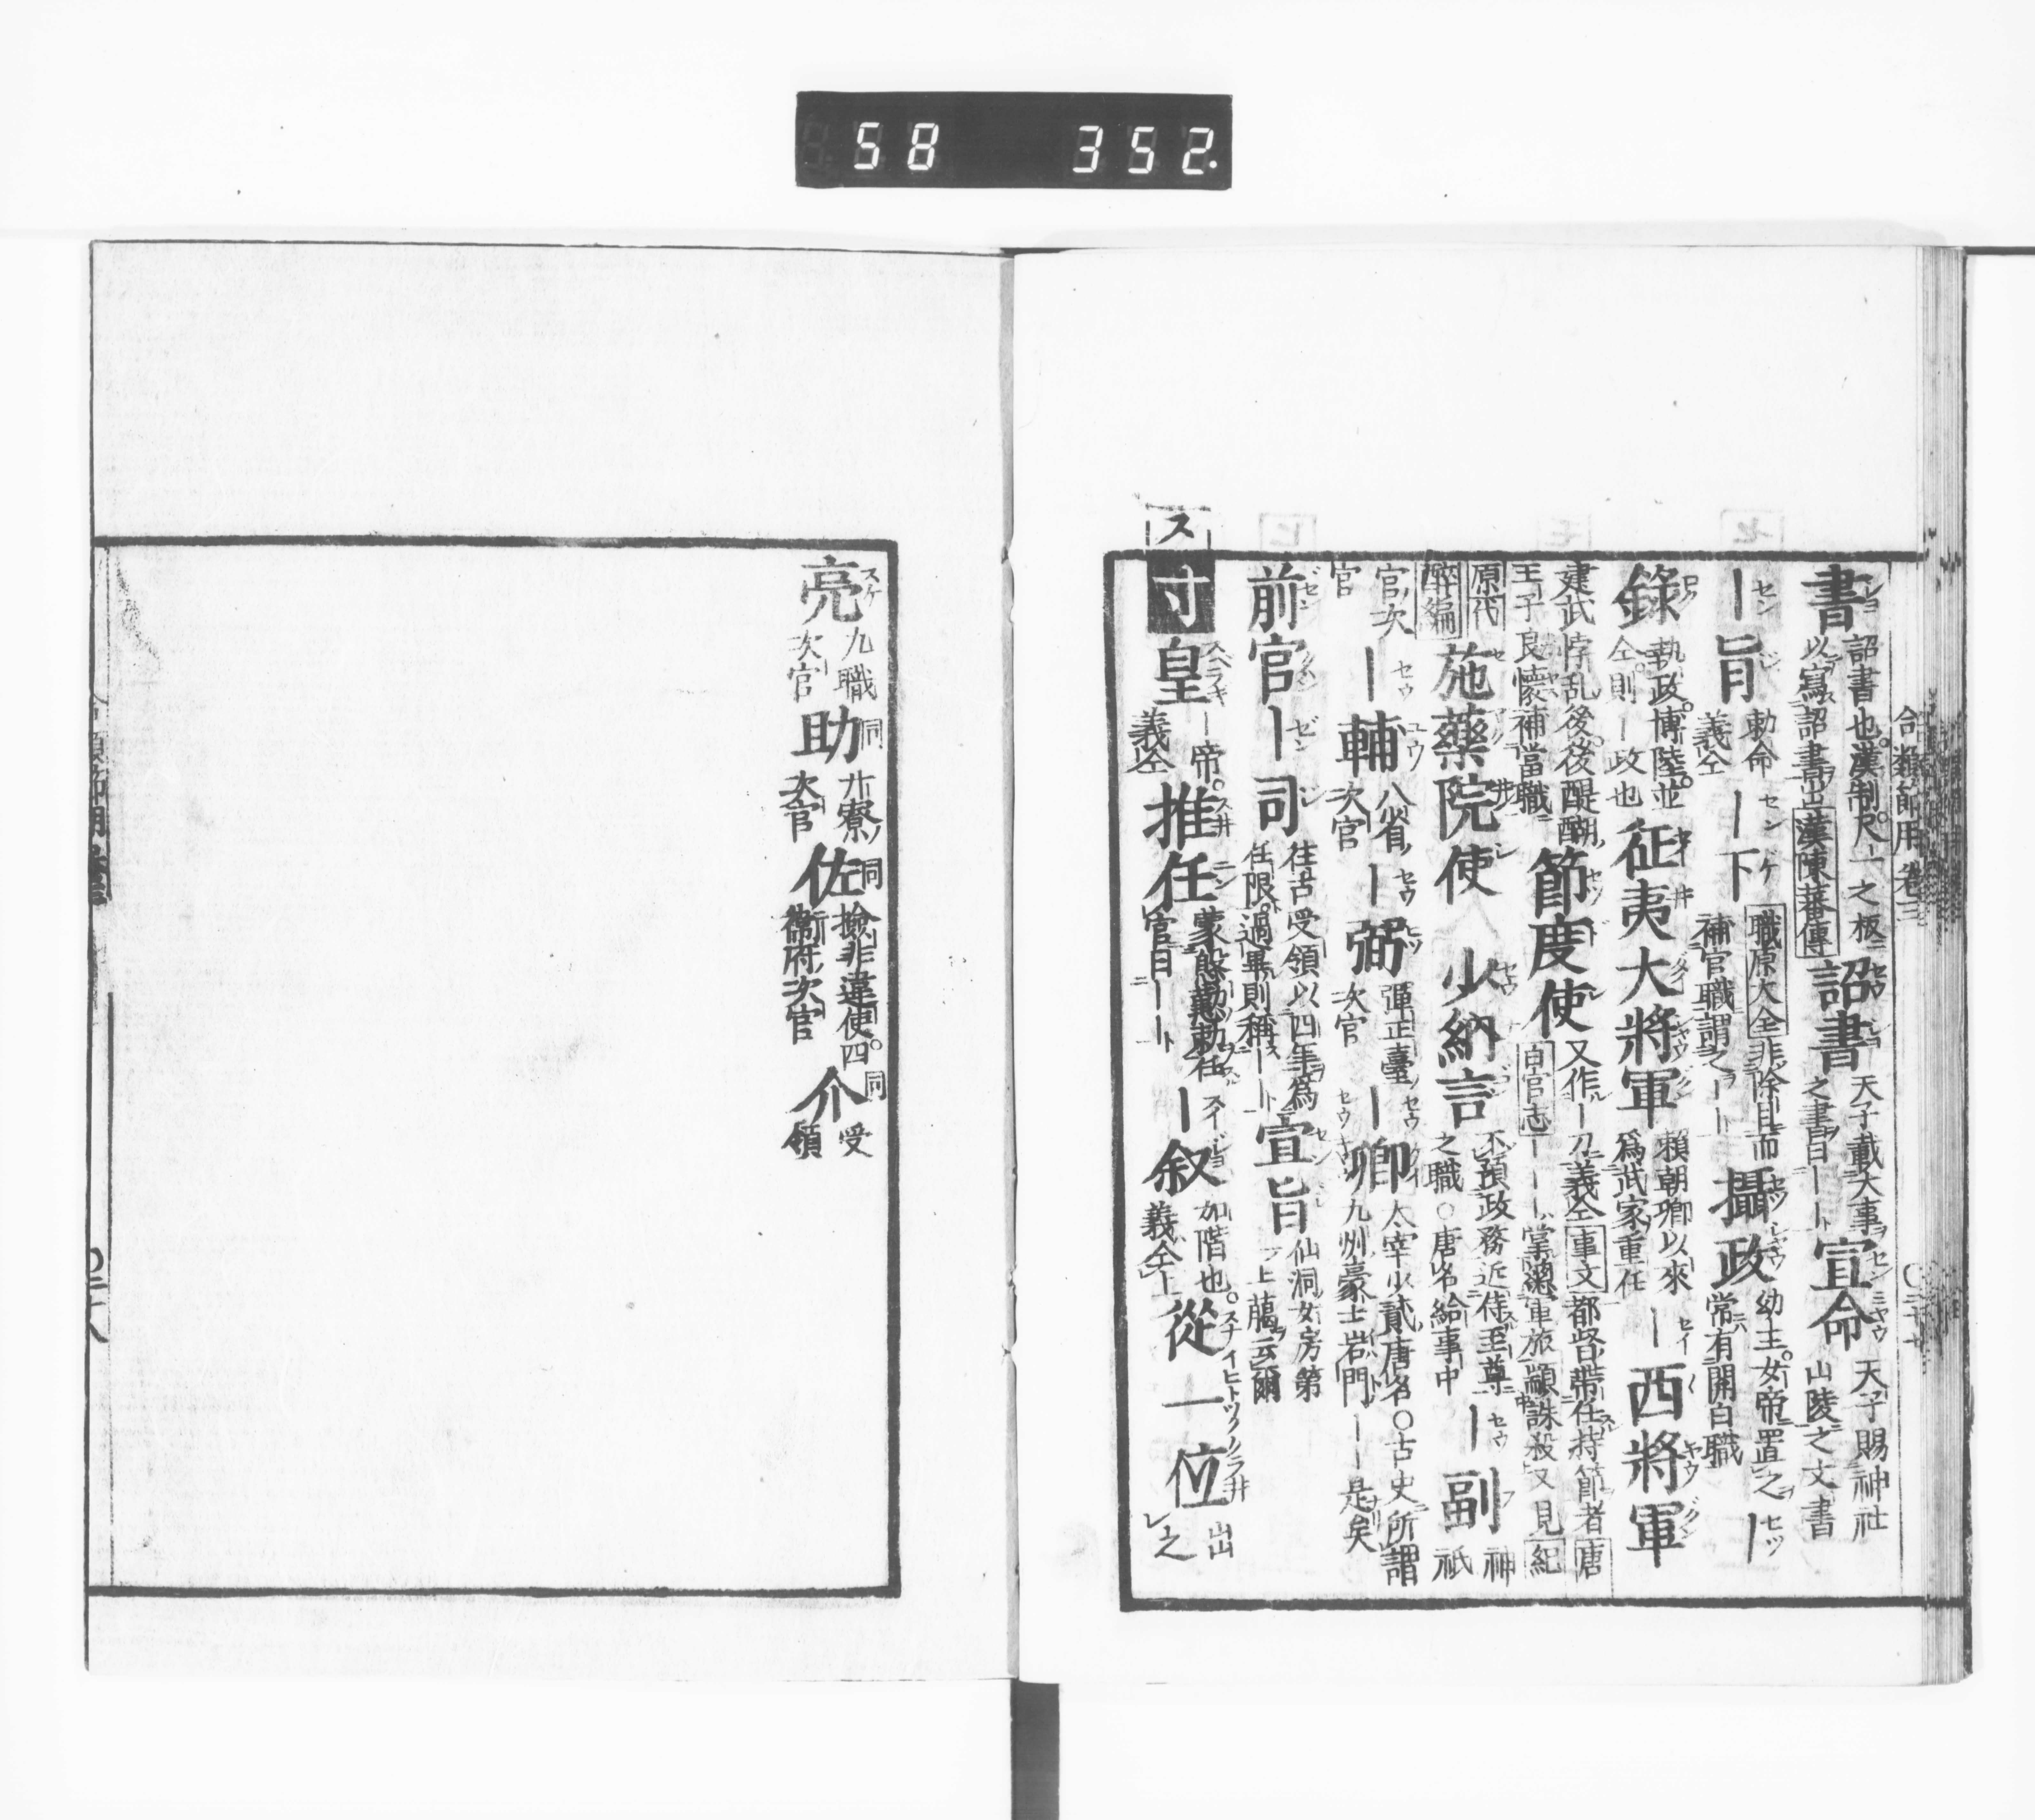 58 352.
合類節用 巻三
書 詔書也。漢制尺一之板ニ以寫詔書出漢陳蕃傳 詔書 天子載大事之書曰ーート 宣命 天子賜神社山陵之文書
ー旨 勅命義仝 ー下 職原大全非除目而補官職謂之ーート 攝政 幼主。女帝置之常有開白職 ー
錄 執政。博陸。並仝。則ー政也 征夷大將軍 頼朝卿以來爲武家重任 ー西將軍
建武悖乱後。後醍醐王子良懷補當職 節度使 又作ー刀義仝事文都督帶任持節者唐百官志ーー掌總軍旅顓誅殺又見紀
原代醉編 施藥院使 少納言 不預政務近侍至尊之職○唐名給事中 ー副 神祇
官次官 ー輔 八省次官 ー弼 彈正臺次官 ー卿 太宰少貳唐名○古史所謂九州豪士岩門ーー是矣
前官 ー司 往古受領以四年爲任限。過畢則稱ーート 宣旨 仙洞女房第一上臈云爾
ス
寸 皇 ー帝。義仝 推任 蒙慇懃勅任官曰ーート ー叙 如階也。義仝上 從一位 出レ之
亮 スケ 九職次官 助 同 廾寮次官 佐 同 撿非違使。四衞府次官 介 同 受領